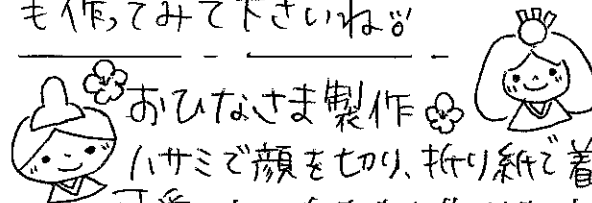 も作ってみて下さいね
おひなさま製作
ハサミで顔を切り、折り紙で着